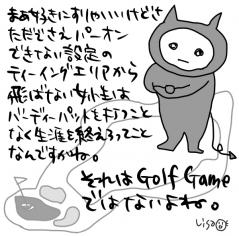 まぁ好きにすりゃいいけどさ
ただどさんパーオン
できない設定の
ティーイングエリアから
飛ばない女子は
バーディーパットを打つこと
なく生涯を終えるってこと
なんですかね。
それはGolf Game
ではてないよね。
Lisa